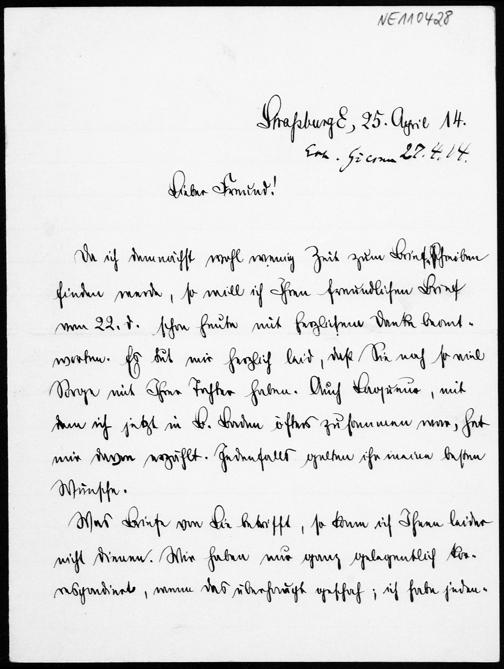 NE110428
Straßburg E, 25. April 14.
27.4.14.
Lieber Freund!
Da ich demnächst wohl wenig Zeit zum Briefschreiben
finden werde, so will ich Ihren freundlichen Brief
vom 22. d. schon heute mit herzlichem Danke beant-
worten. Es tut mir herzlich leid, daß Sie noch so viel
Sorge mit Ihrer Tochter haben. Auch Laqueur, mit
dem ich jetzt in B. Baden öfters zusammen war, hat
mir davon erzählt. Jedenfalls gelten ihr meine besten
Wünsche.
Was Briefe von Lie betrifft, so kann ich Ihnen leider
nicht dienen. Wir haben nur ganz gelegentlich kor-
respondiert, wenn das überhaupt geschah; ich habe jeden-